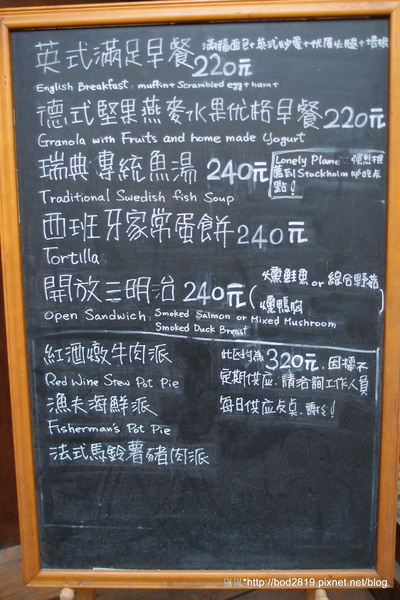 英式滿足早餐 220元
滿福面包+英式炒蛋+火腿+培根
English Breakfast: muffin+Scrambled egg+ham+
德式堅果燕麥水果优格早餐220元
Granola with Fruits and home made Yogurt
瑞典專統魚湯 240元
Lonely Plane 強烈推
薦到Stockholm 必吃
點!
Traditional Swedish fish Soup
西班牙家常蛋餅240元
Tortilla
開放三明治 240元(燻鮭魚 or 綜合野菇
燻鴨胸)
Open Sandwich: Smoked Salmon or Mixed Mushroom
Smoked Duck Breast
紅酒燉牛肉派
Red Wine Stew Pot Pie
漁夫海鮮派
Fisherman's Pot Pie
法式馬鈴薯豬肉派
此区均為320元.因擇不
定期供应.請洽詢工作人員
每日供应点.謝謝!
http://bod2819.pixnet.net/blog